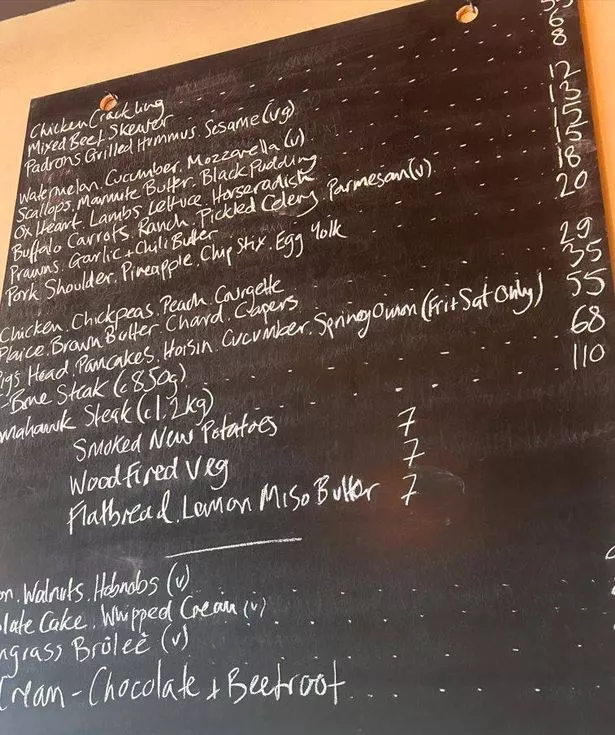 Chicken Crackling 5.5
Mixed Beef Skewer 6
Padrons Grilled Hummus. Sesame (vg) 8
Watermelon. Cucumber. Mozzarella (v) 12
Scallops. Marmite Butter. Black Pudding 13
Ox Heart. Lambs Lettuce. Horseradish 15
Buffalo Carrots. Ranch. Pickled Celery. Parmesan (v). 15
Prawns. Garlic + Chili Butter 18
Pork Shoulder. Pineapple. Chip Stix. Egg Yolk 20
Chicken. Chickpeas. Peach. Courgette 29
Plaice. Brown Butter. Chard. Capers 35
igs Head. Pancakes. Hoisin. Cucumber. Spring Onion (Fri + Sat Only) 55
-Bone Steak (c850g) 68
mahawk Steak (c1.2kg) 110
Smoked New Potatoes 7
Woodfired Veg 7
Flatbread. Lemon Miso Butter 7
on. Walnuts. Hobnobs (v)
late Cake. Whipped Cream (v)
ngrass Brûleé (v)
Cream - Chocolate + Beetroot